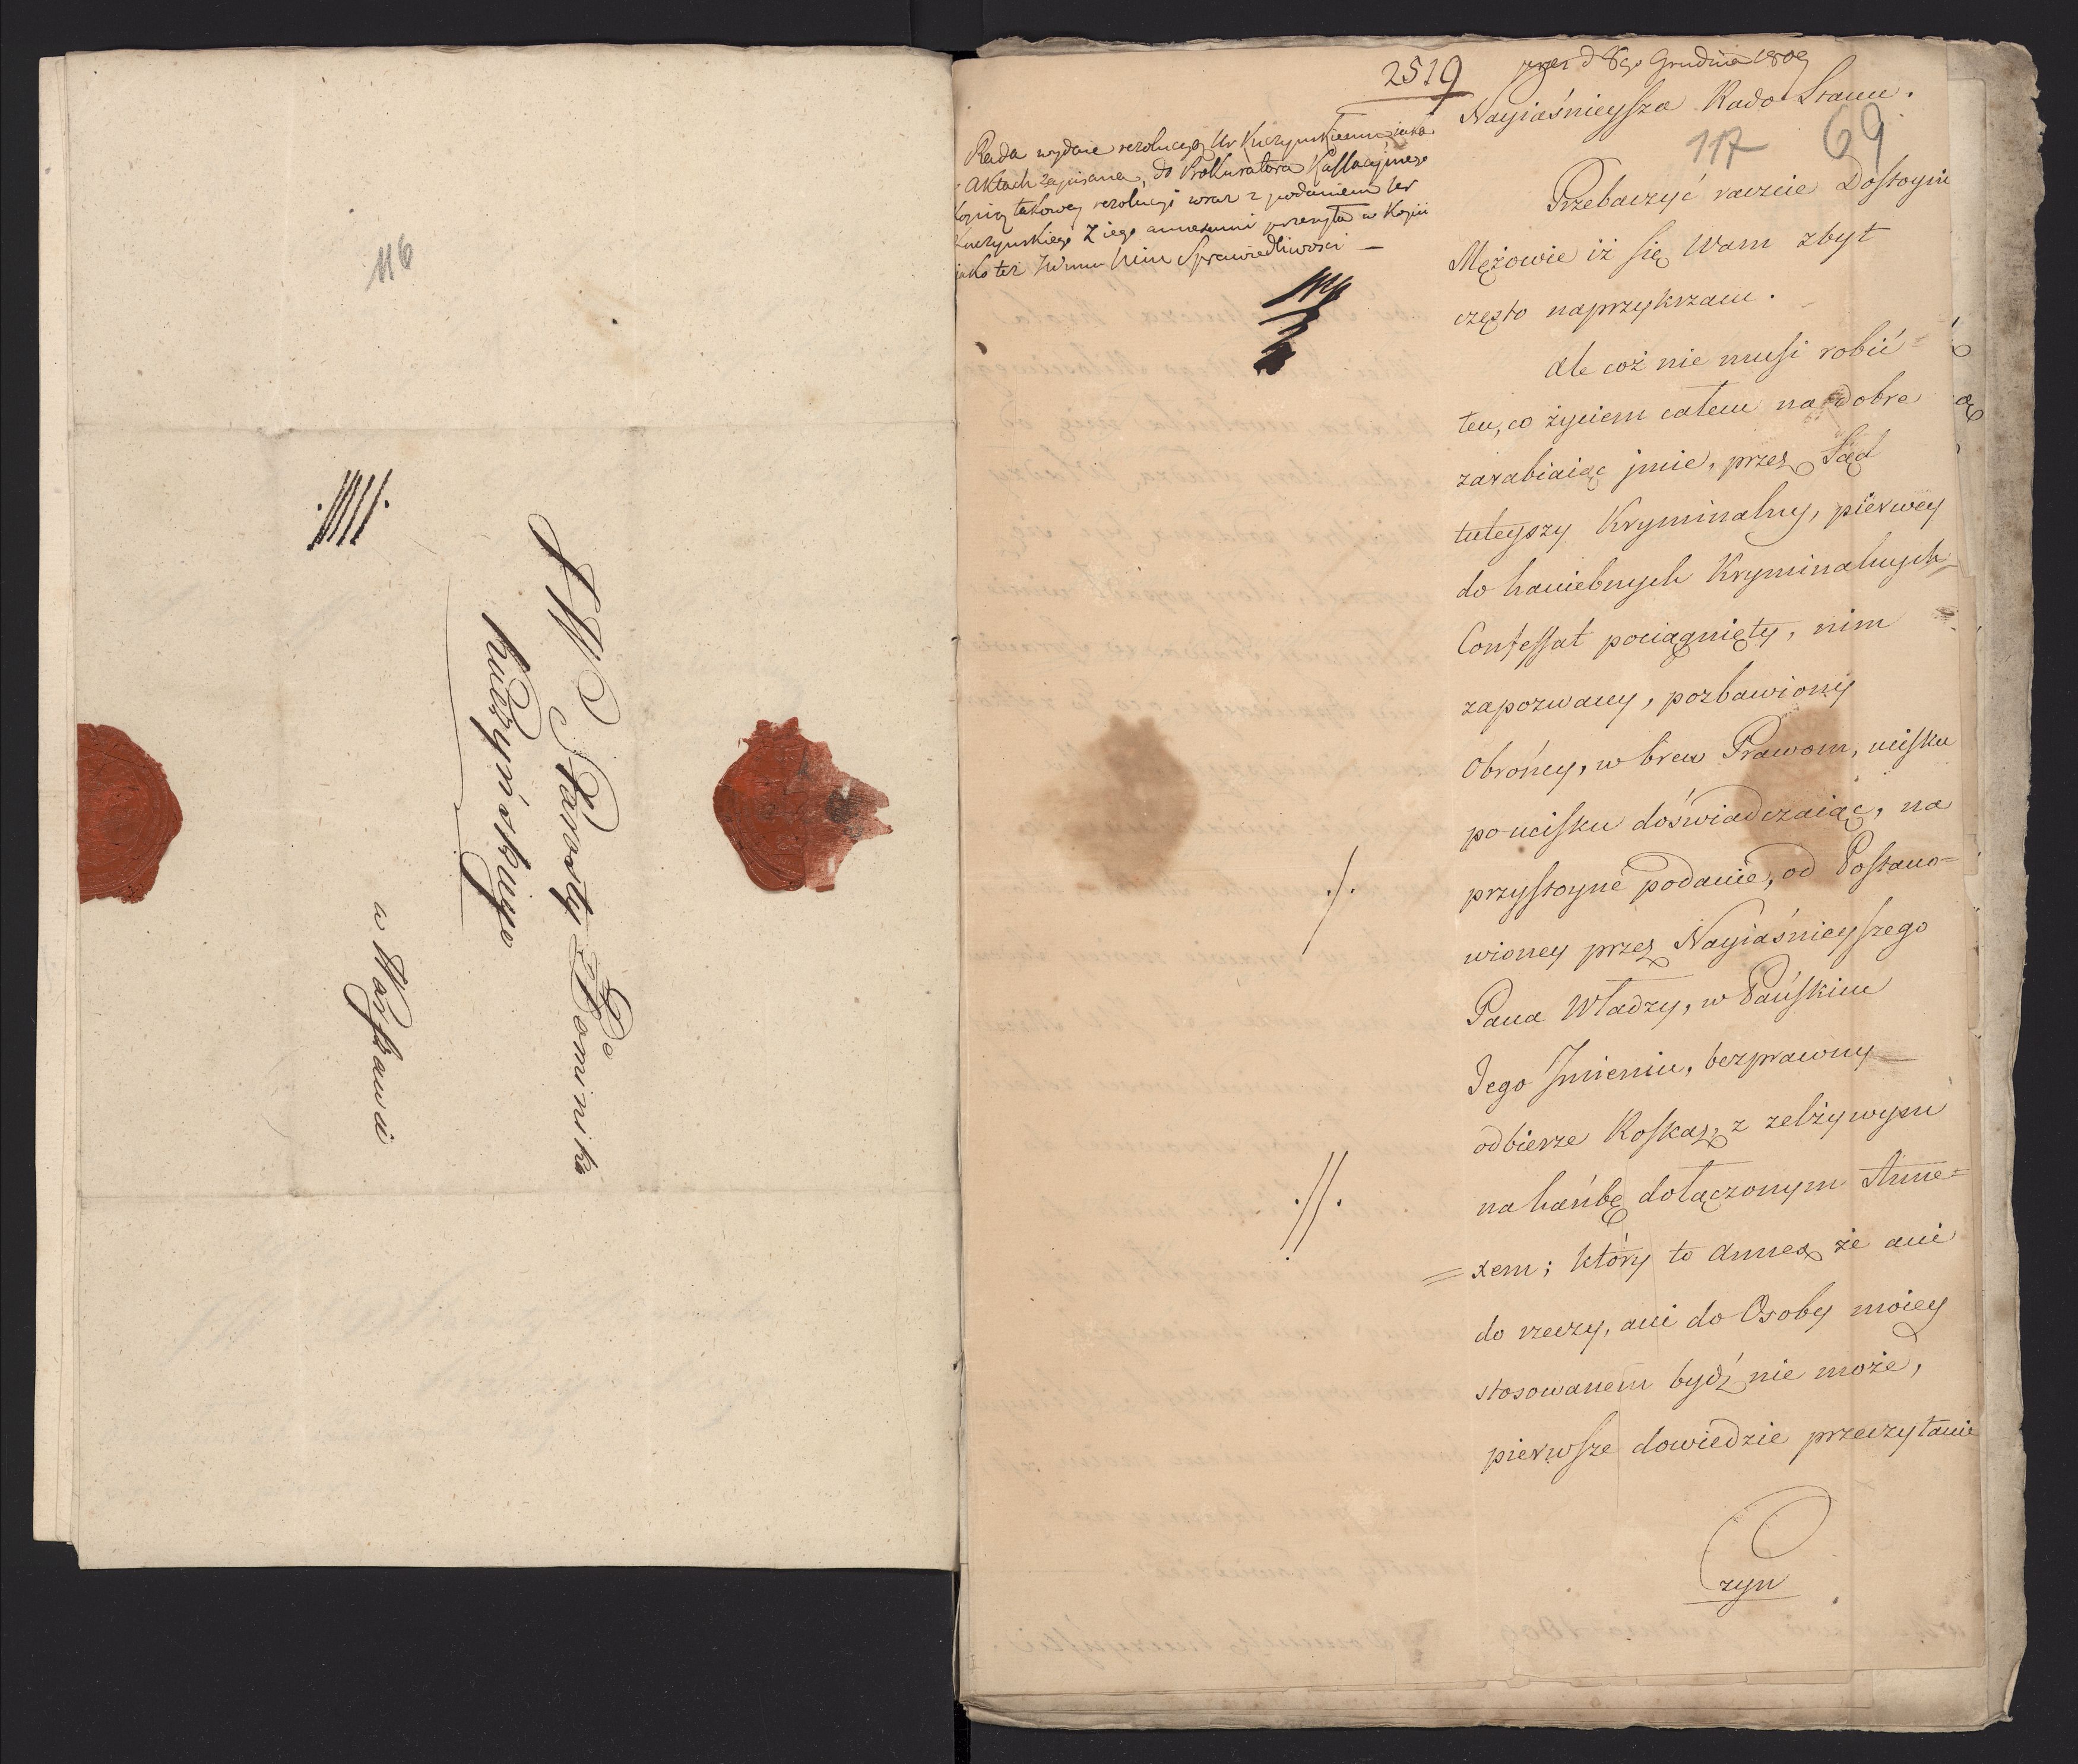 116
JWO Starosty Dominika
Kuczyńskiego
w Warszawie
2519
prez d 8go Grudnia 1809
Nayiaśnieysza Rado Stanu.
117 69
Rada wydaie rezolucyą Ur Kuczyńskiemu iaka
Aktach zapisana, do Prokuratora Kassacyinego
Kopią takowey rezolucyi wraz z podaniem Ur
Kuczyńskiego z iego annexami przesyła w Kopii
jako też JW mu Min Sprawiedliwości —
Przebaczyć raczcie Dostoyni
Mężowie iż się Wam zbyt
często naprzykrzam.
Ale coż nie musi robić
ten, co życiem całem na dobre
zarabiaiąc jmie, przez Sąd
tuteyszy Kryminalny, pierwey
do haniebnych Kryminalnych
Confessat pociągnięty, nim
zapozwany, pozbawiony
Obrońcy, w brew Prawom, ucisku
po ucisku doświadczaiąc, na
przystoyne podanie, od Postano=
wioney przez Nayiaśnieyszego
Pana Władzy, w Pańskim
Jego Jmieniu, bezprawny
odbierze Roskaz, z zelżywym
na hańbę dołączonym Anne=
=xem; który to Annex że ani
do rzeczy, ani do Osoby moiey
stosowanem bydź nie może,
pierwsze dowiedzie przeczytanie
./.
.//.
zyn